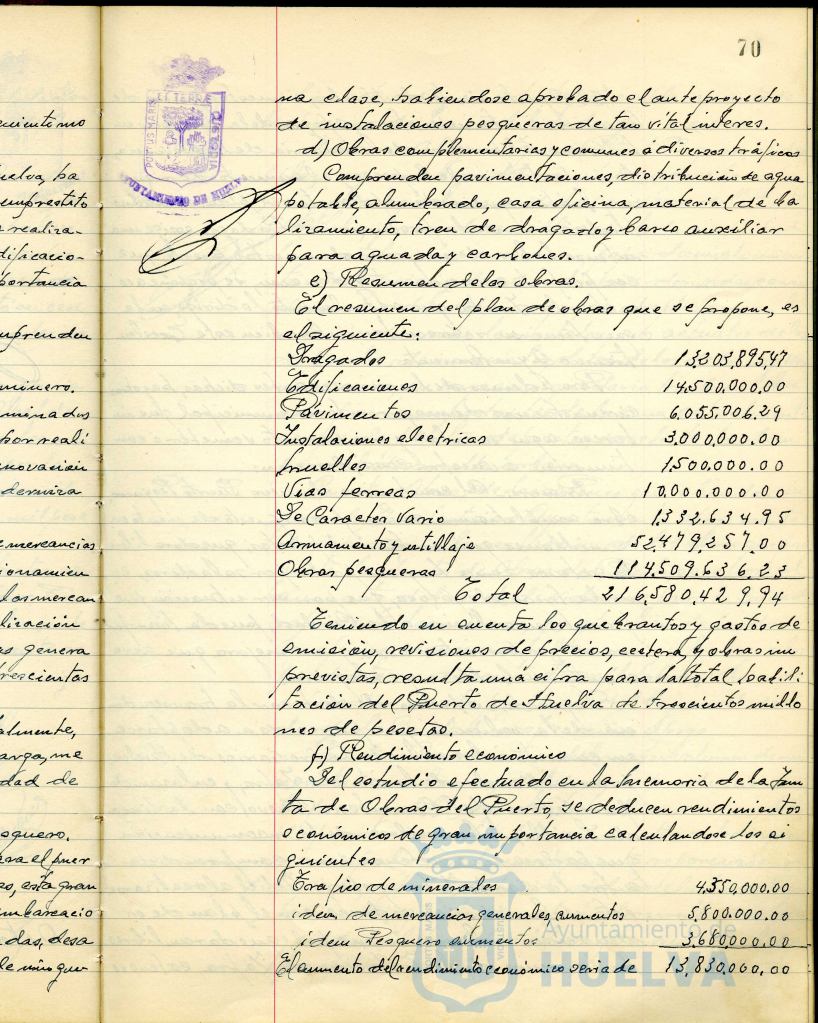 70
na clase, habiendose aprobado el anteproyecto
de instalaciones pesqueras de tan vital interes.
d) Obras complementarias y comunes á diversos tráficos
Comprenden pavimentaciones, distribucion de agua
potable, alumbrado, casa oficina, material de ba
lizamiento, tren de dragado y barco auxiliar
para aguada y carbones.
e) Resumen de las obras.
El resumen del plan de obras que se propone, es
el siguiente:
Dragados 13.203.895,47
Edificaciones 14.500.000.00
Pavimentos 6.055.006.29
Instalaciones electricas 3.000.000.00
Muelles 1.500.000.00
Vias ferreas 10.000.000.00
De Caracter Vario 1.332.634.95
Armamento y utillaje 52.479.257.00
Obras pesqueras 114.509.636.23
Total 216.580.429,94
Teniendo en cuenta los quebrantos y gastos de
emisión, revisiones de precios, ecetera, y obras im
previstas, resulta una cifra para la total habili
tación del Puerto de Huelva de trescientos millo
nes de pesetas.
f) Rendimiento económico
Del estudio efectuado en la Memoria de la Jun
ta de Obras del Puerto, se deducen rendimientos
económicos de gran importancia calculandose los si
guientes
Trafico de minerales 4.350,000.00
idem de mercancias generales, aumentos 5.800.000.00
idem Pesquero aumentos 3.680,000.00
El aumento del rendimiento económico seria de 13,830.000,00
uelva, ha
emprestito
realiza-
dificacio-
portancia
mprenden
minero.
minados
por reali
novación
mercancias
las mercan
lización
as genera
trescientos
almente,
arga, me
dad de
squero.
ara el puer
es, esta gran
mbarcacio
das, desa
AYUNTAMIENTO DE HUELVA
PORTUS MARIS ET TERRE CUSTODIA
Ayuntamiento de
HUELVA